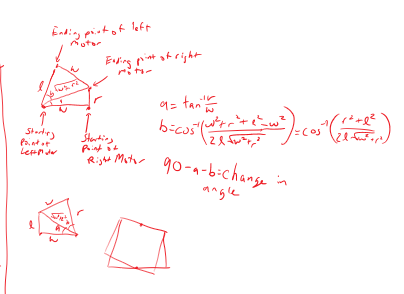 Ending point of left
motor
Ending point of right
motor
l
w
√w²+r²
r
w
Starting
Point of
Left Motor
Starting
Point of
Right Motor
a = tan⁻¹ r/w
b = cos⁻¹((w²+r²+l²-w²)/(2l√w²+r²)) = cos⁻¹((r²+l²)/(2l√w²+r²))
90-a-b=change in
angle
w
l
r
w